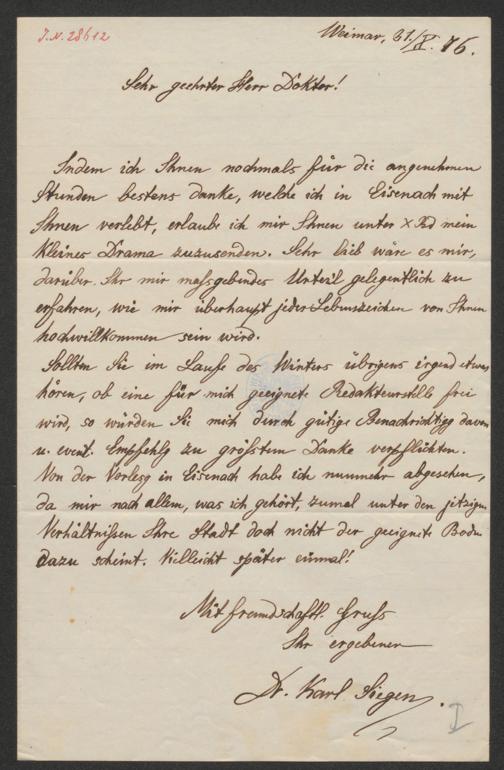 J.N. 28612
Weimar, 31./X. 76.
Sehr geehrter Herr Doktor!
Indem ich Ihnen nochmals für die angenehmen
Stunden bestens danke, welche ich in Eisenach mit
Ihnen verlebt, erlaube ich mir Ihnen unter XBd mein
kleines Drama zuzusenden. Sehr lieb wäre es mir,
darüber Ihr mir massgebendes Urteil gelegentlich zu
erfahren, wie mir überhaupt jedes Lebenszeichen von Ihnen
hochwillkommen sein wird.
Sollten Sie im Laufe des Winters übrigens irgend etwas
hören, ob eine für mich geeignete Redakteurstelle frei
wird, so würden Sie mich durch gütige Benachrichtigg davon
u. event. Empfehlg zu grösstem Danke verpflichten.
Von der Vorlesg in Eisenach habe ich nunmehr abgesehen,
da mir nach allem, was ich gehört, zumal unter den jetzigen
Verhältnissen Ihre Stadt doch nicht der geeignete Boden
dazu scheint. Vielleicht später einmal!
Mit freundschaftl. Gruss
Ihr ergebener
Dr. Karl Siegen.
I